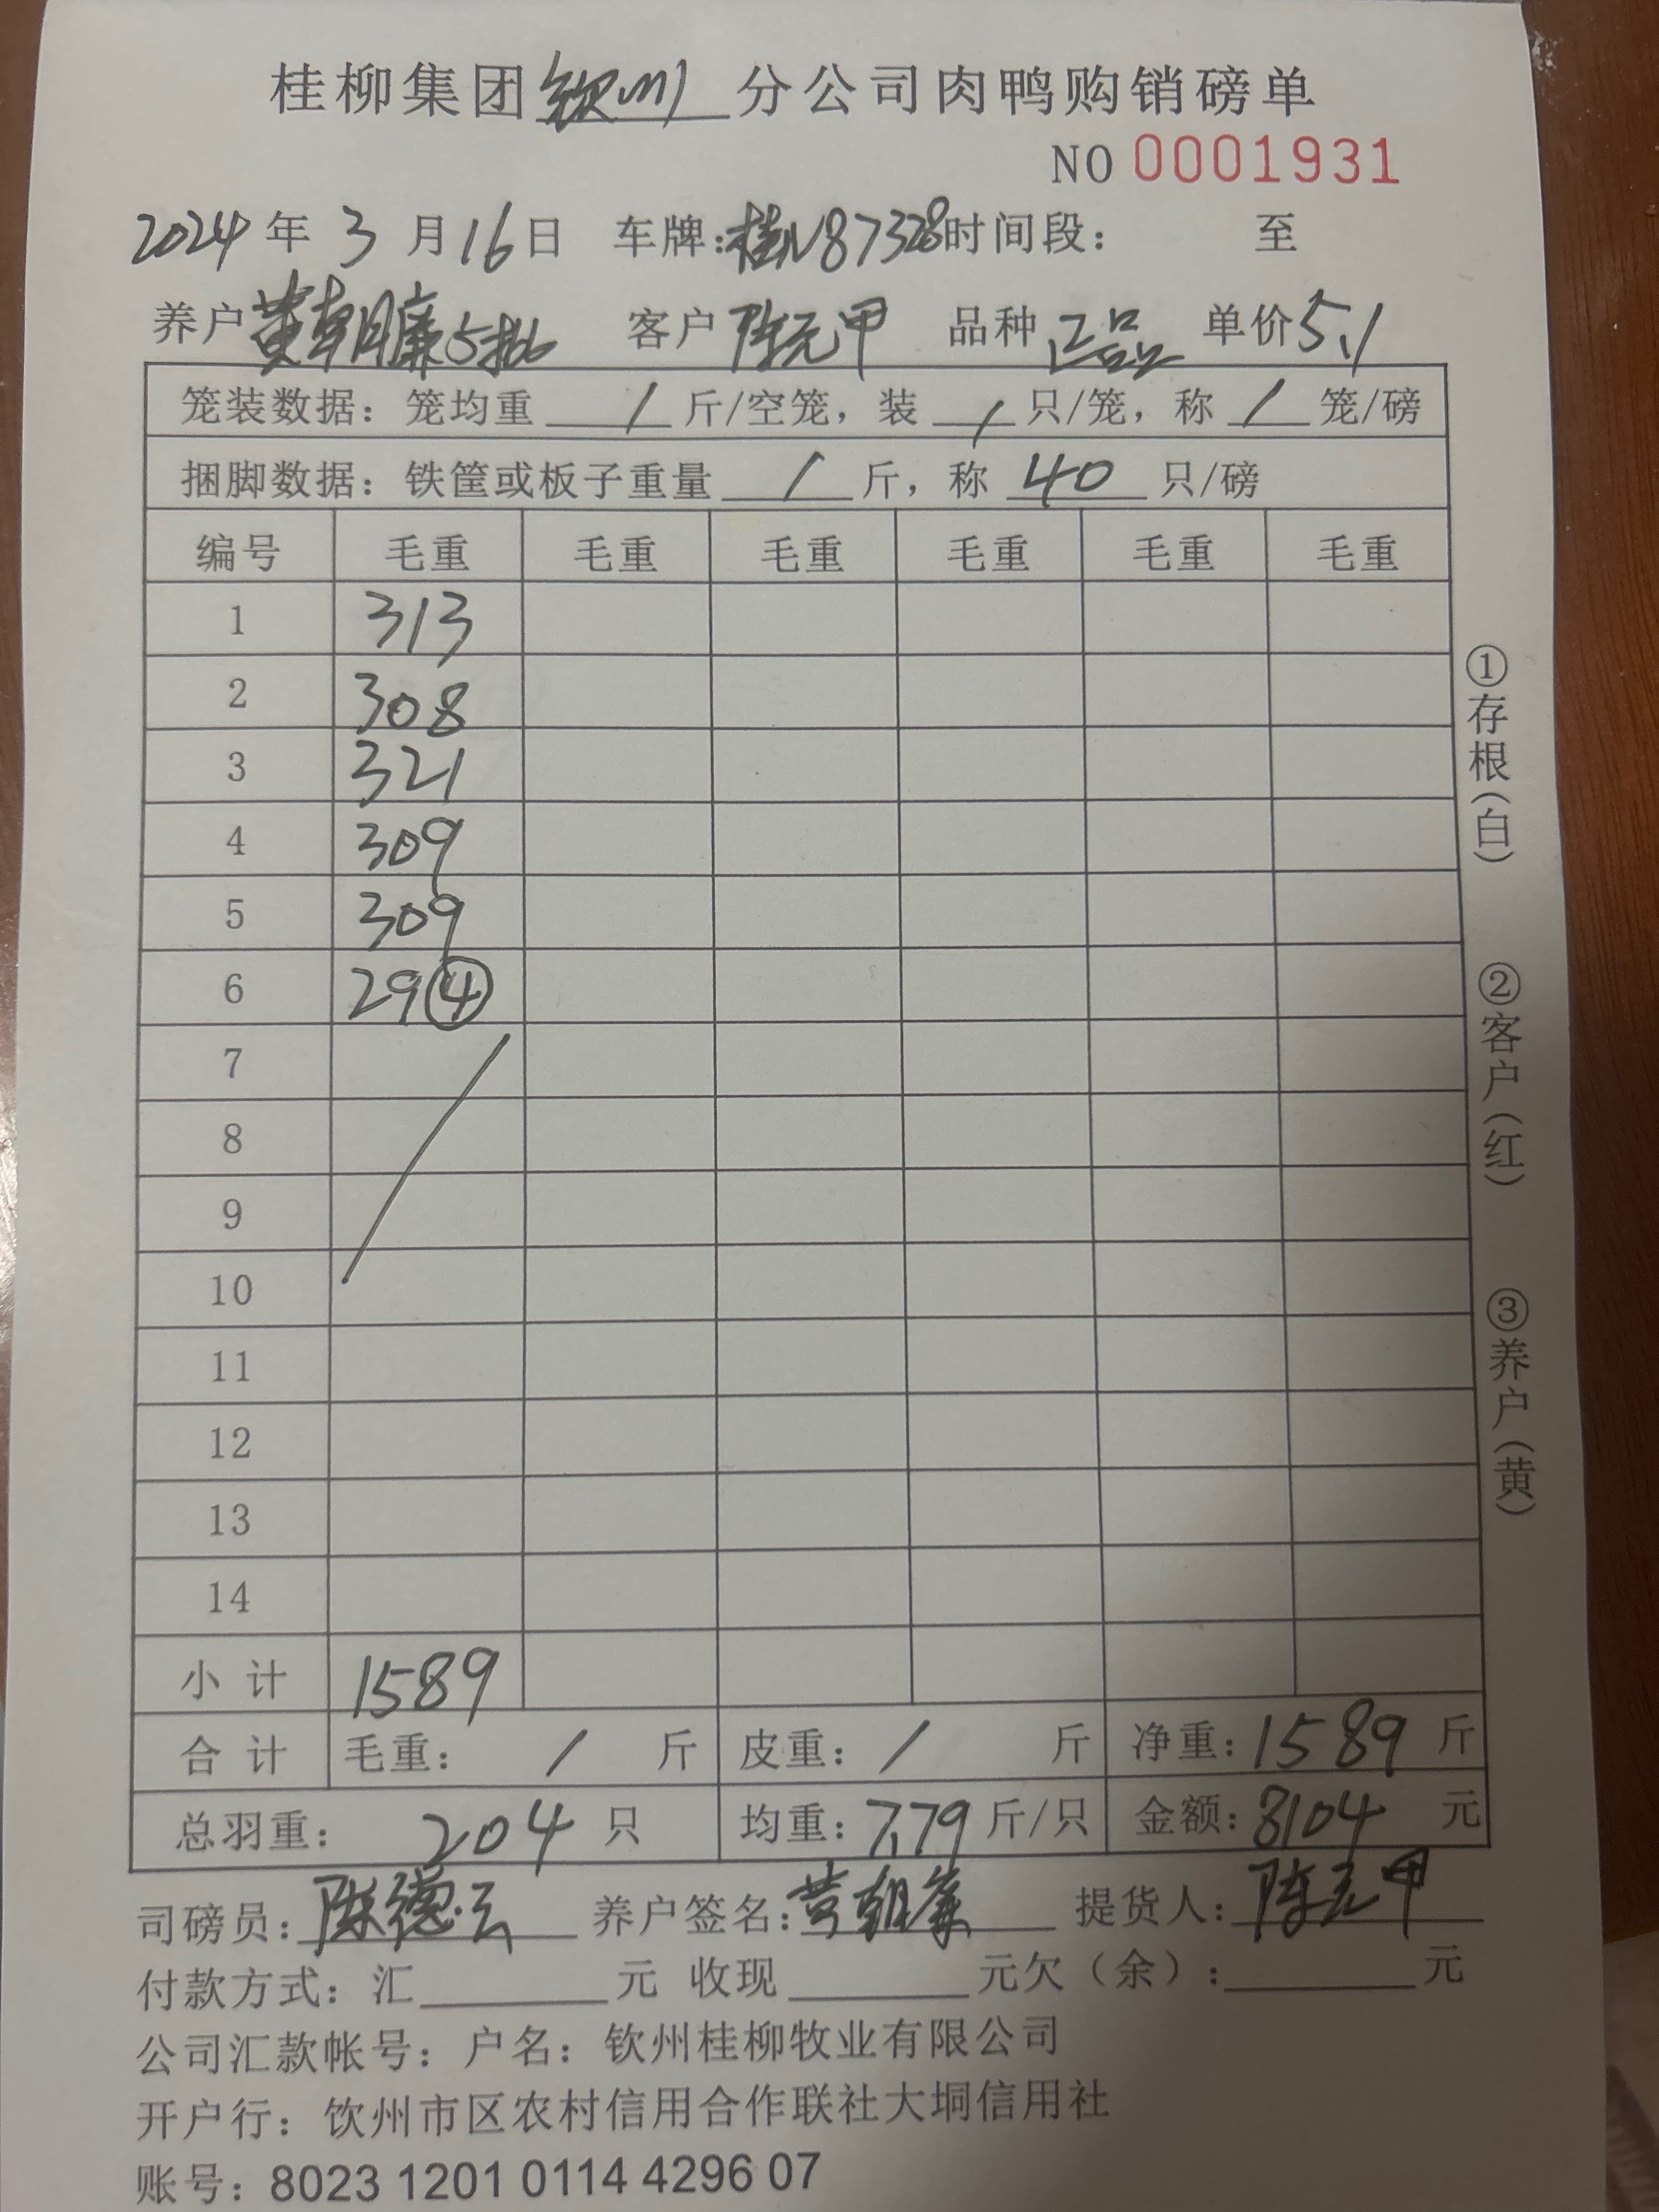 桂柳集团钦州分公司肉鸭购销磅单
NO 0001931
2024年3月16日 车牌:桂N87328时间段: 至
养户黄朝廉5批 客户陈元甲 品种正品 单价5.1
笼装数据:笼均重/斤/空笼,装/只/笼,称/笼/磅
捆脚数据:铁筐或板子重量/斤,称40只/磅
编号 毛重 毛重 毛重 毛重 毛重 毛重
1 313
2 308
3 321
4 309
5 309
6 29④
7
8
9
10
11
12
13
14
小计 1589
合计 毛重:/斤 皮重:/斤 净重:1589斤
总羽重:204只 均重:7.79斤/只 金额:8104元
司磅员:陈德云 养户签名:黄朝廉 提货人:陈元甲
付款方式:汇 元 收现 元欠(余): 元
公司汇款帐号:户名:钦州桂柳牧业有限公司
开户行:饮州市区农村信用合作联社大垌信用社
账号:8023 1201 0114 4296 07
①存根(白) ②客户(红) ③养户(黄)